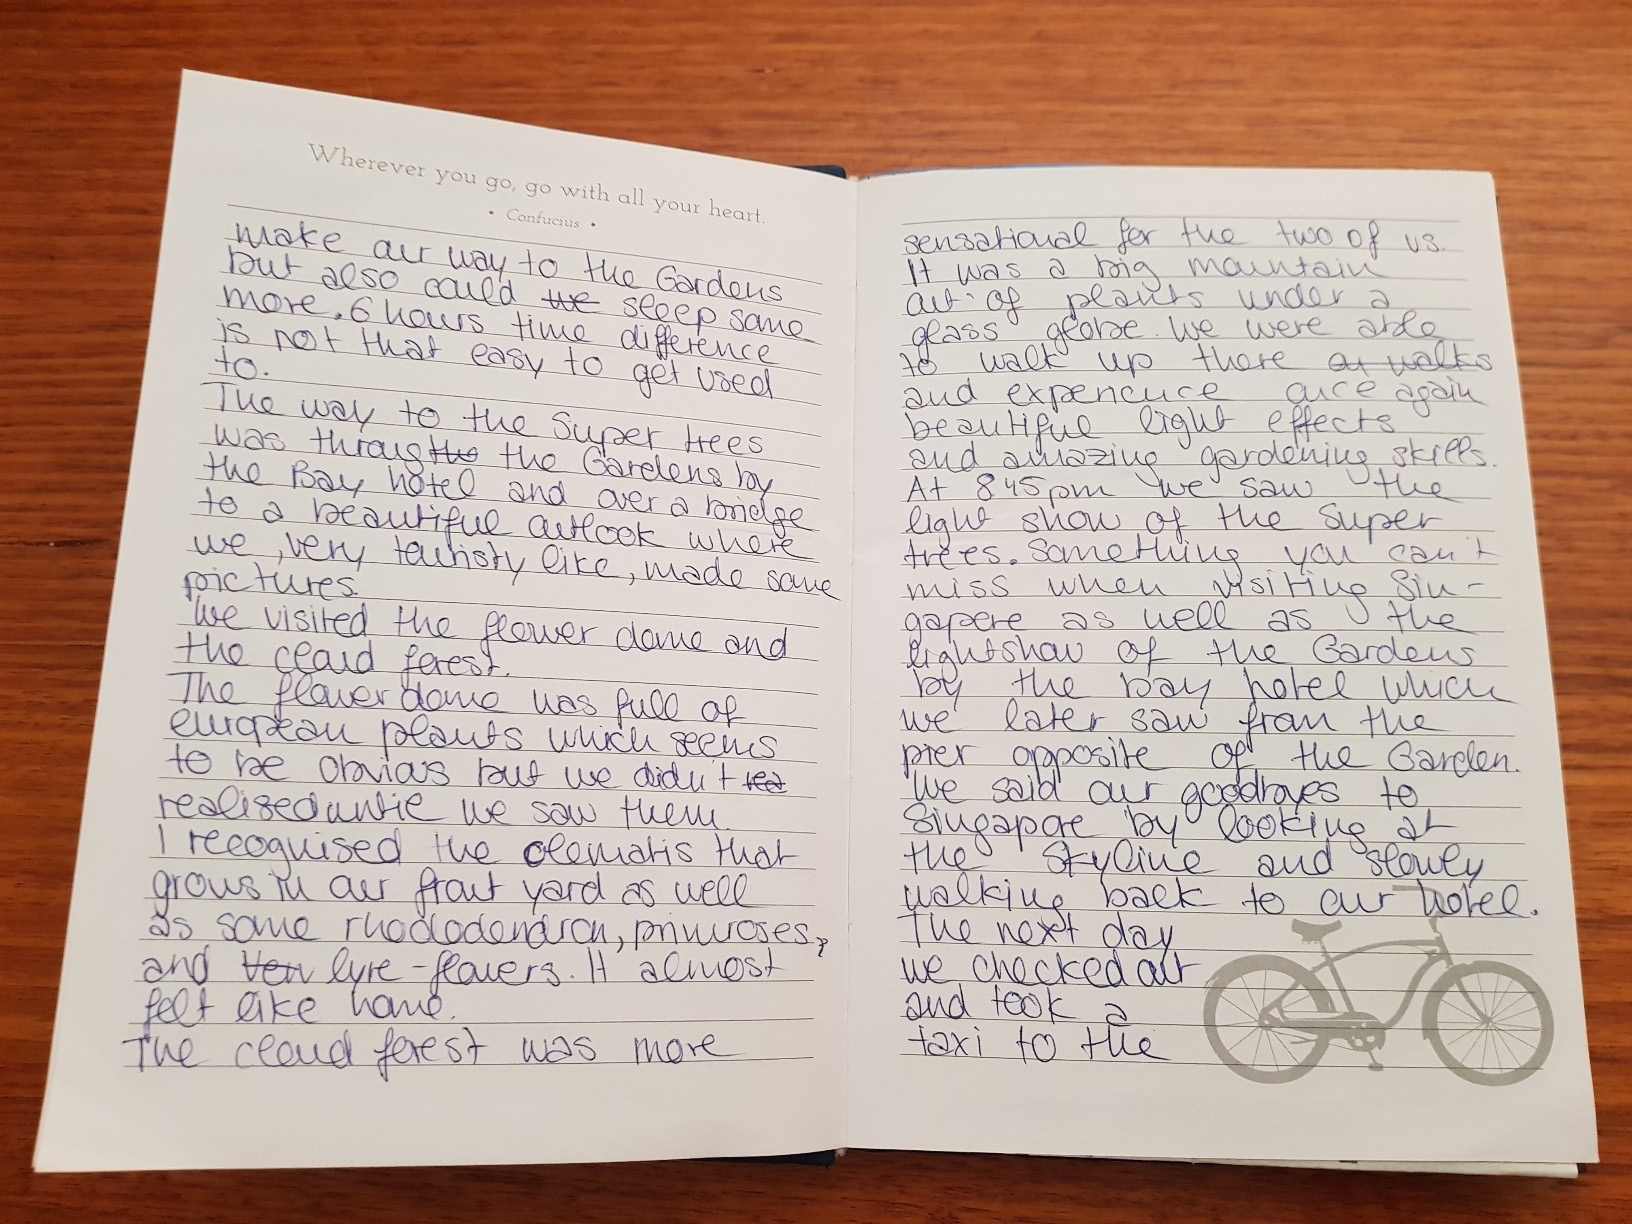 Wherever you go, go with all your heart.
• Confucius •
make our way to the Gardens
but also could the sleep some
more. 6 hours time difference
is not that easy to get used
to.
The way to the Super trees
was throug the the Gardens by
the Bay hotel and over a bridge
to a beautiful outlook where
we, very touristy like, made some
pictures.
We visited the flower dome and
the cloud forest.
The flower dome was full of
european plants which seems
to be obvious but we didn't rea
realised until we saw them.
I recognised the clematis that
grows in our front yard as well
as some rhododendron, primroses,
and lyre-flowers. It almost
felt like home.
The cloud forest was more
sensational for the two of us.
It was a big mountain
out of plants under a
glass globe. We were able
to walk up there on walks
and experience once again
beautiful light effects
and amazing gardening skills.
At 845pm we saw the
light show of the super
trees. Something you can't
miss when visiting Sin-
gapore as well as the
lightshow of the Gardens
by the Bay hotel which
we later saw from the
pier opposite of the Garden.
We said our goodbyes to
Singapore by looking at
the skyline and slowly
walking back to our hotel.
The next day
we checked out
and took a
taxi to the